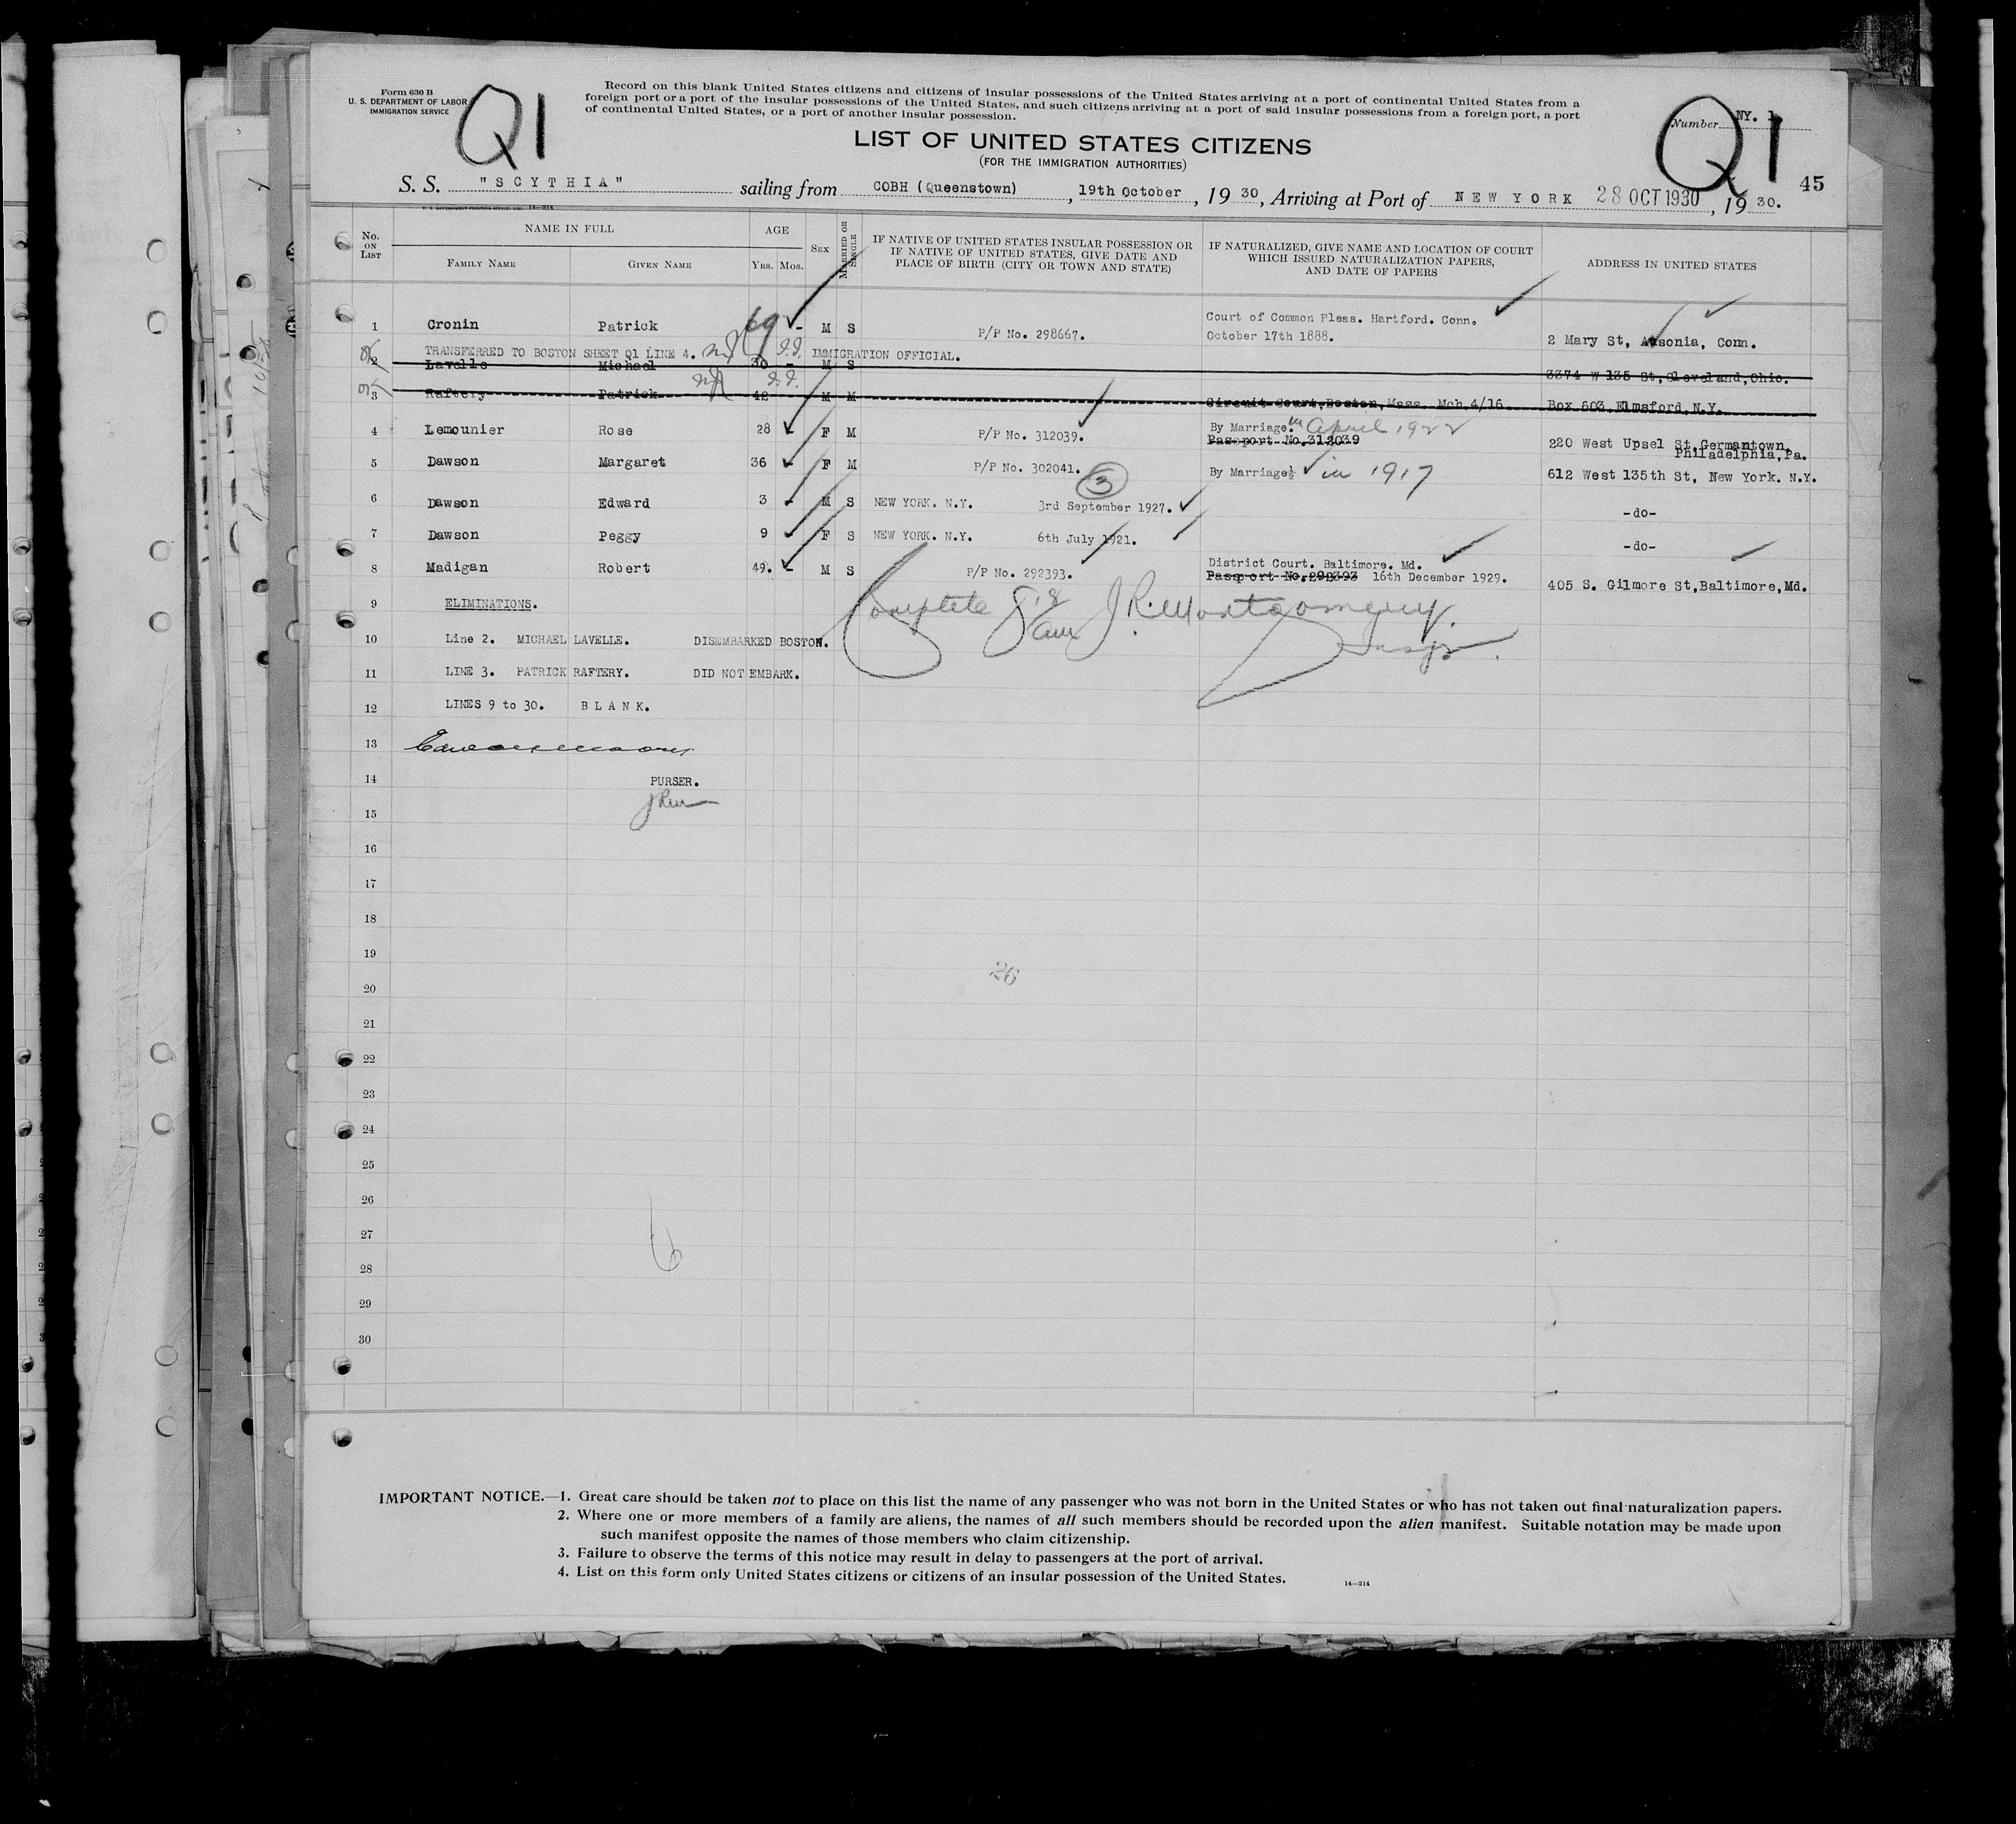 Form 630 B
U. S. DEPARTMENT OF LABOR
IMMIGRATION SERVICE
Q1
Record on this blank United States citizens and citizens of insular possessions of the United States arriving at a port of continental United States from a
foreign port or a port of the insular possessions of the United States, and such citizens arriving at a port of said insular possessions from a foreign port, a port
of continental United States, or a port of another insular possession.
Number NY. 1
Q1
LIST OF UNITED STATES CITIZENS
(FOR THE IMMIGRATION AUTHORITIES)
45
S. S. "SCYTHIA" sailing from COBH (Queenstown), 19th October, 1930, Arriving at Port of NEW YORK 28 OCT 1930, 1930.
No. ON LIST
NAME IN FULL
FAMILY NAME GIVEN NAME
AGE
YRS. MOS.
SEX
MARRIED OR SINGLE
IF NATIVE OF UNITED STATES INSULAR POSSESSION OR
IF NATIVE OF UNITED STATES, GIVE DATE AND
PLACE OF BIRTH (CITY OR TOWN AND STATE)
IF NATURALIZED, GIVE NAME AND LOCATION OF COURT
WHICH ISSUED NATURALIZATION PAPERS,
AND DATE OF PAPERS
ADDRESS IN UNITED STATES
1 Cronin Patrick 69 - M S P/P No. 298667. Court of Common Pleas. Hartford. Conn. October 17th 1888. 2 Mary St, Ansonia, Conn.
TRANSFERRED TO BOSTON SHEET Q1 LINE 4. IMMIGRATION OFFICIAL.
2 Lavelle Michael 30 - M S 3374 W 135 St, Cleveland, Ohio.
3 Raftery Patrick 42 M M Circuit Court, Boston, Mass. Mch 4/16 Box 503 Elmsford, N.Y.
4 Lemounier Rose 28 - F M P/P No. 312039. By Marriage. in April 1922 Passport No. 312039 220 West Upsel St, Germantown, Philadelphia, Pa.
5 Dawson Margaret 36 - F M P/P No. 302041. By Marriage in 1917 612 West 135th St, New York. N.Y.
3
6 Dawson Edward 3 - M S NEW YORK. N.Y. 3rd September 1927. -do-
7 Dawson Peggy 9 - F S NEW YORK. N.Y. 6th July 1921. -do-
8 Madigan Robert 49. - M S P/P No. 292393. District Court. Baltimore. Md. Passport No. 292393 16th December 1929. 405 S. Gilmore St, Baltimore, Md.
9 ELIMINATIONS.
Complete J R. Montgomery
10 Line 2. MICHAEL LAVELLE. DISEMBARKED BOSTON.
11 LINE 3. PATRICK RAFTERY. DID NOT EMBARK.
12 LINES 9 to 30. BLANK.
13
14 PURSER.
15
16
17
18
19
26
20
21
22
23
24
25
26
27
6
28
29
30
IMPORTANT NOTICE.—1. Great care should be taken not to place on this list the name of any passenger who was not born in the United States or who has not taken out final naturalization papers.
2. Where one or more members of a family are aliens, the names of all such members should be recorded upon the alien manifest. Suitable notation may be made upon
such manifest opposite the names of those members who claim citizenship.
3. Failure to observe the terms of this notice may result in delay to passengers at the port of arrival.
4. List on this form only United States citizens or citizens of an insular possession of the United States.
14—214